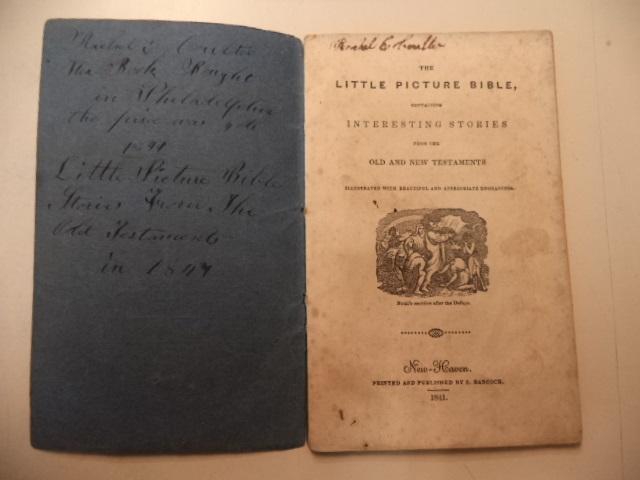 Rachel E Coulter
Her Book Bought
in Philadelphia
the price was
Little Picture Bible
Stories From The
Old Testament
in 1844
Rachel E Coulter
THE
LITTLE PICTURE BIBLE,
CONTAINING
INTERESTING STORIES
FROM THE
OLD AND NEW TESTAMENTS
ILLUSTRATED WITH BEAUTIFUL AND APPROPRIATE ENGRAVINGS.
Noah's sacrifice after the Deluge.
New-Haven.
PRINTED AND PUBLISHED BY S. BABCOCK.
1841.